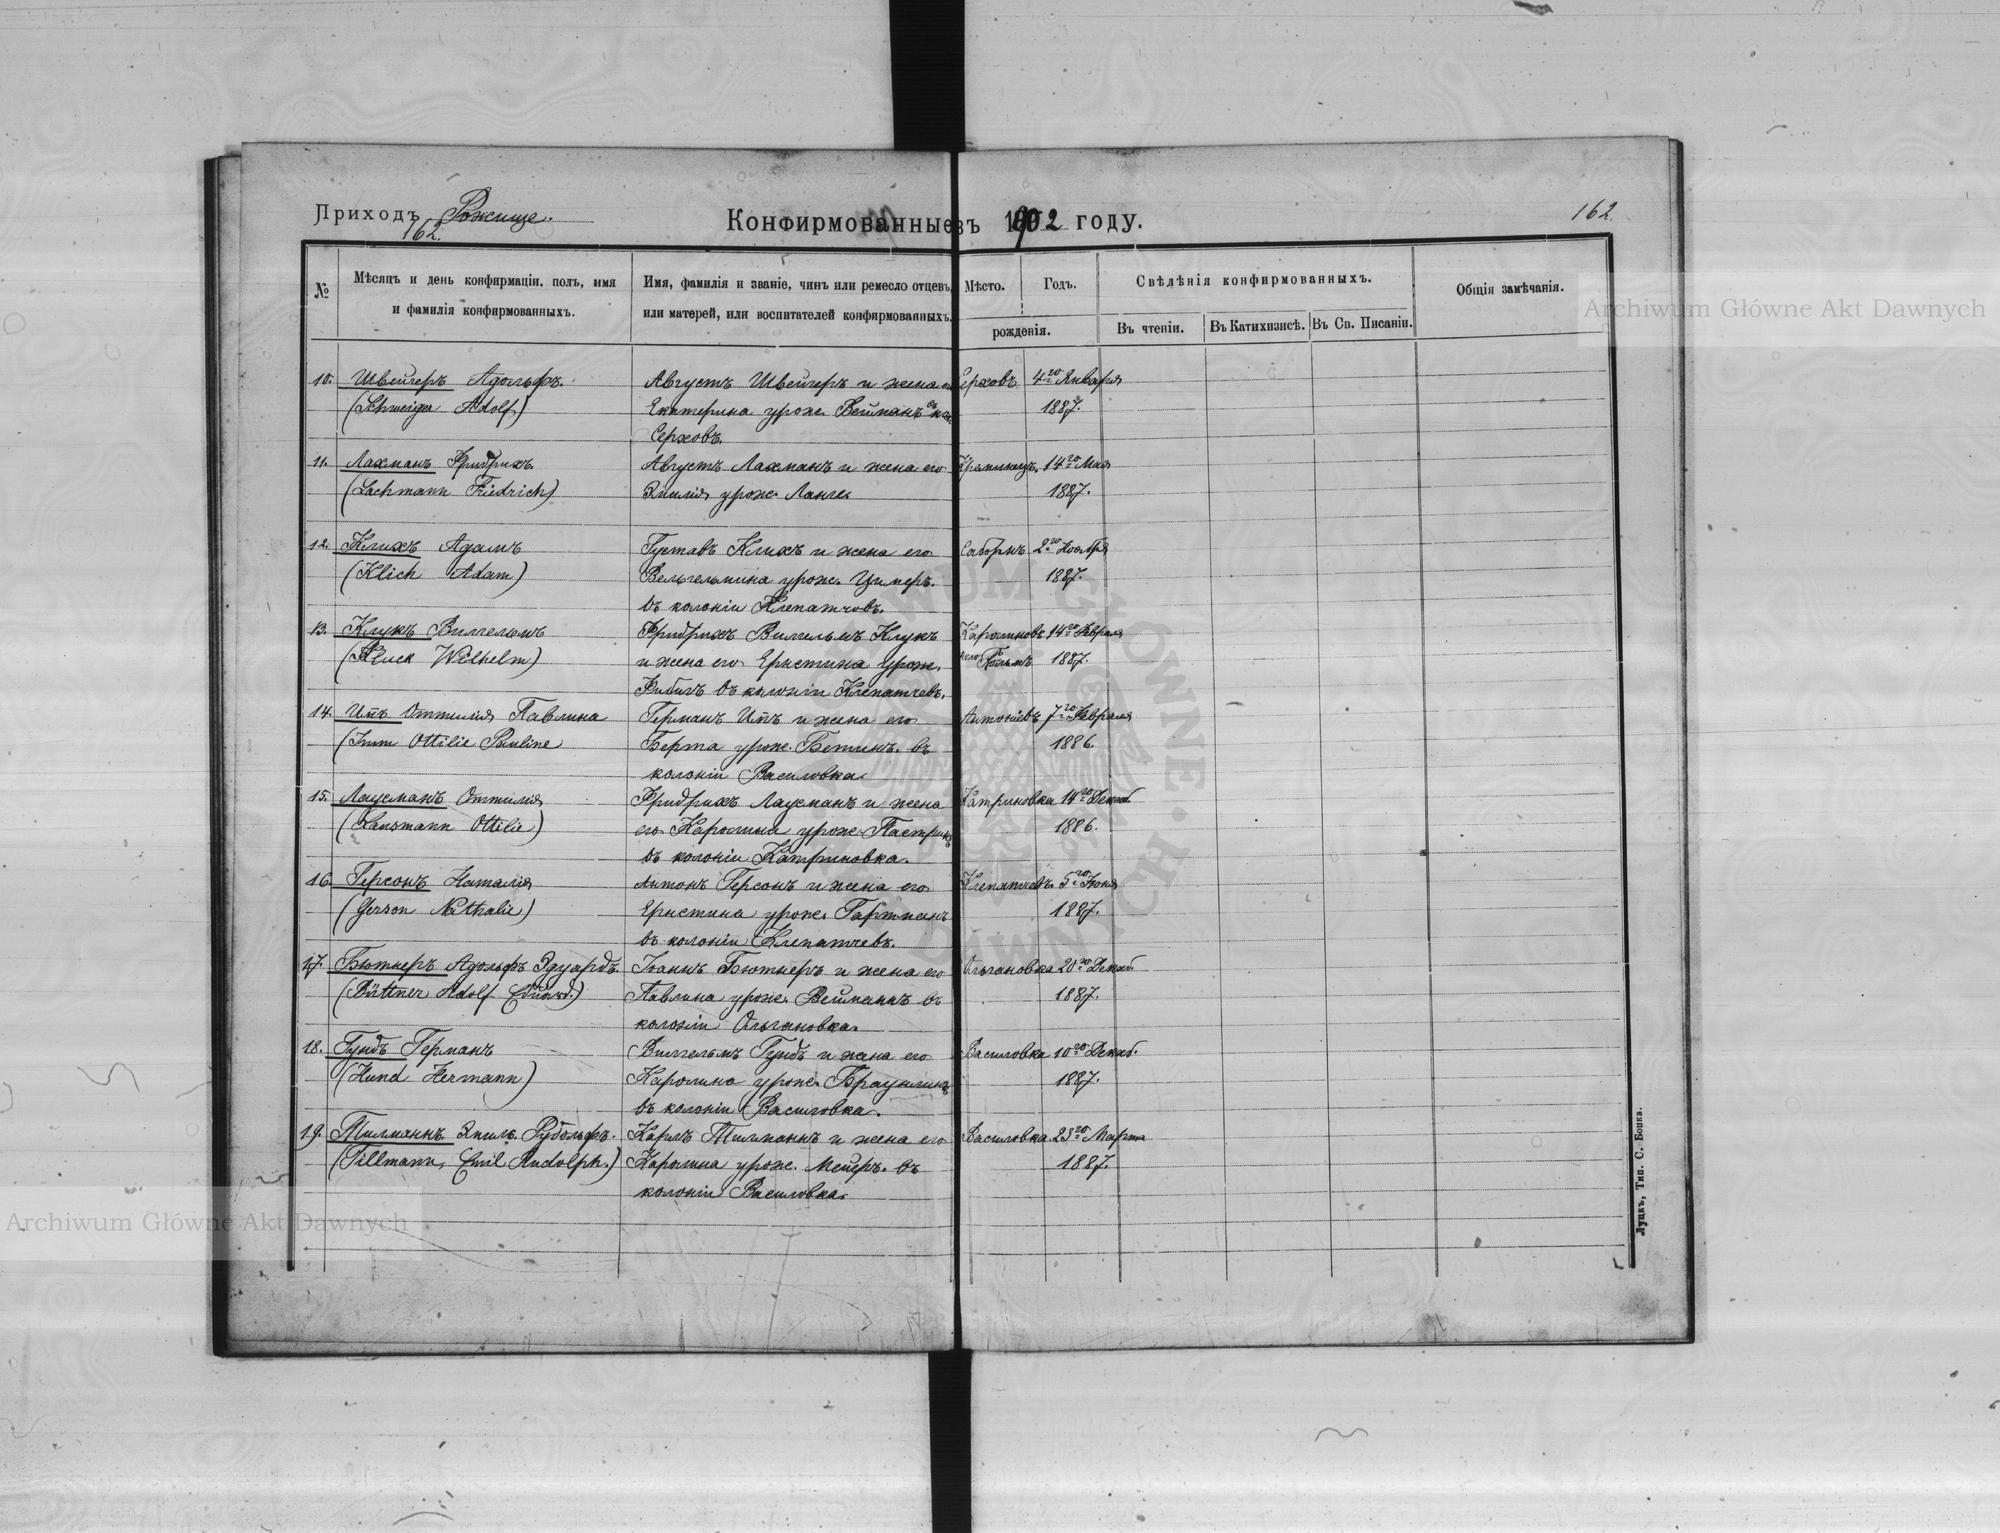 Приходъ Рожище.
162.
Конфирмованные въ 1902 году.
162.
№
Мѣсяцъ и день конфирмаціи, полъ, имя
и фамилія конфирмованныхъ.
Имя, фамилія и званіе, чинъ или ремесло отцевъ,
или матерей, или воспитателей конфирмованныхъ.
Мѣсто.
Годъ.
рожденія.
Свѣдѣнія конфирмованныхъ.
Въ чтеніи.
Въ Катихизисѣ.
Въ Св. Писаніи.
Общія замѣчанія.
10. Швейгеръ Адольфъ. Августъ Швейгеръ и жена его Серховъ 4го Января
(Schweiger Adolf) Екатерина урож. Вейманъ въ кол. 1887.
Серховъ.
11. Лахманъ Фридрихъ. Августъ Лахманъ и жена его 14го Мая
(Lachmann Friedrich) Эмилія урож. Ланге. 1887.
12. Клихъ Адамъ Густавъ Клихъ и жена его 2го Ноября
(Klich Adam) Вельгельмина урож. Цимеръ. 1887.
въ колоніи Клепатчовъ.
13. Клукъ Вилгельмъ Фридрихъ Вилгельмъ Клукъ 14го Февраля
(Kluck Wilhelm) и жена его Ернстина урож. 1887.
въ колоніи Клепатчевъ.
14. Имъ Оттилія Павлина Германъ Имъ и жена его Антоніевъ 7го Февраля
(Imm Ottilie Pauline) Берта урож. въ 1886.
колоніи Василовка.
15. Лаусманъ Оттилія Фридрихъ Лаусманъ и жена Катриновка 14го Декаб.
(Lausmann Ottilie) его Каролина урож. 1886.
въ колоніи Катриновка.
16. Герсонъ Наталія Антонъ Герсонъ и жена его Клепатчевъ 5го
(Gerson Nathalie) Ернстина урож. Гартманъ 1887.
въ колоніи Клепатчевъ.
17. Бютнеръ Адольфъ Эдуардъ. Іоанъ Бютнеръ и жена его Ольгановка 20го Декаб.
(Büttner Adolf Eduard.) Павлина урож. Вейманъ въ 1887.
колоніи Ольгановка.
18. Гундъ Германъ Вилгельмъ Гундъ и жена его Василовка 10го Декаб.
(Hund Hermann) Каролина урож. 1887.
въ колоніи Василовка.
19. Тилманнъ Эмиль Рудольфъ. Карлъ Тилманнъ и жена его Василовка 23го Марта
(Tillmann, Emil Rudolph.) Каролина урож. Мейеръ. въ 1887.
колоніи Василовка.
Луцкъ, Тип. С. Бокса.
Archiwum Główne Akt Dawnych
Archiwum Główne Akt Dawnych